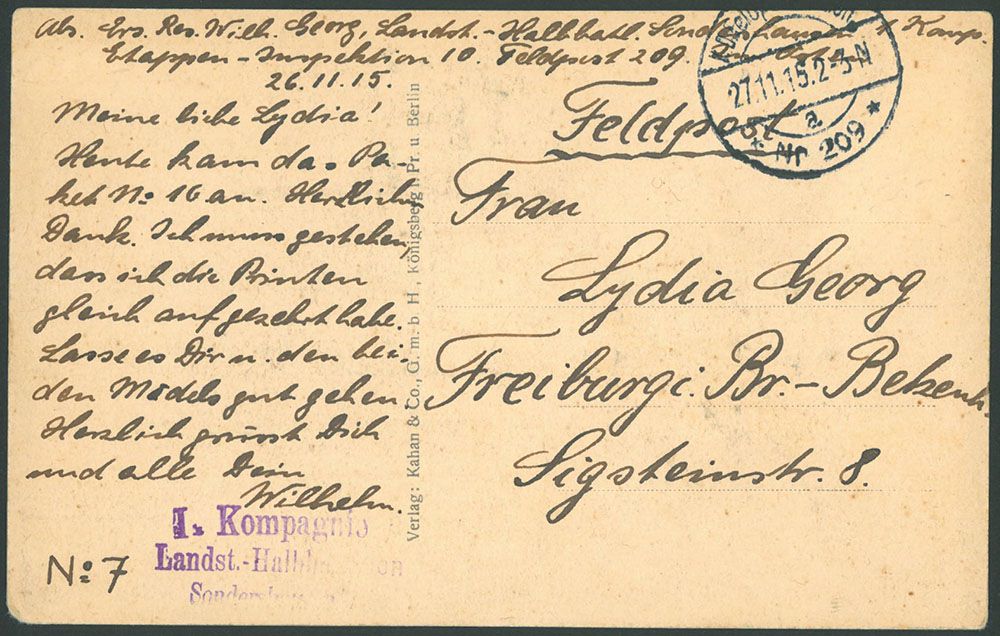 Abs. Ers. Res. Wilh. Georg, Landst.-Halbbatl. 1 Komp.
Etappen-Inspektion 10. Feldpost 209.
26.11.15.
Meine liebe Lydia!
Heute kam das Pa-
ket No 16 an. Herzlichen
Dank. Ich muss gestehen,
dass ich die Printen
gleich aufgezehrt habe.
Lasse es Dir u. den bei-
den Mädels gut gehen.
Herzlich grüsst Dich
und alle Dein
Wilhelm.
I. Kompagnie
Landst.-Halb
Sonders
No 7
Verlag: Kahan & Co., G. m. b H., Königsberg i. Pr. u Berlin
27.11.15.2-3N
a
Nr 209 *
Feldpost
Frau
Lydia Georg
Freiburg i. Br.-Betzenh.
Sigsteinstr. 8.